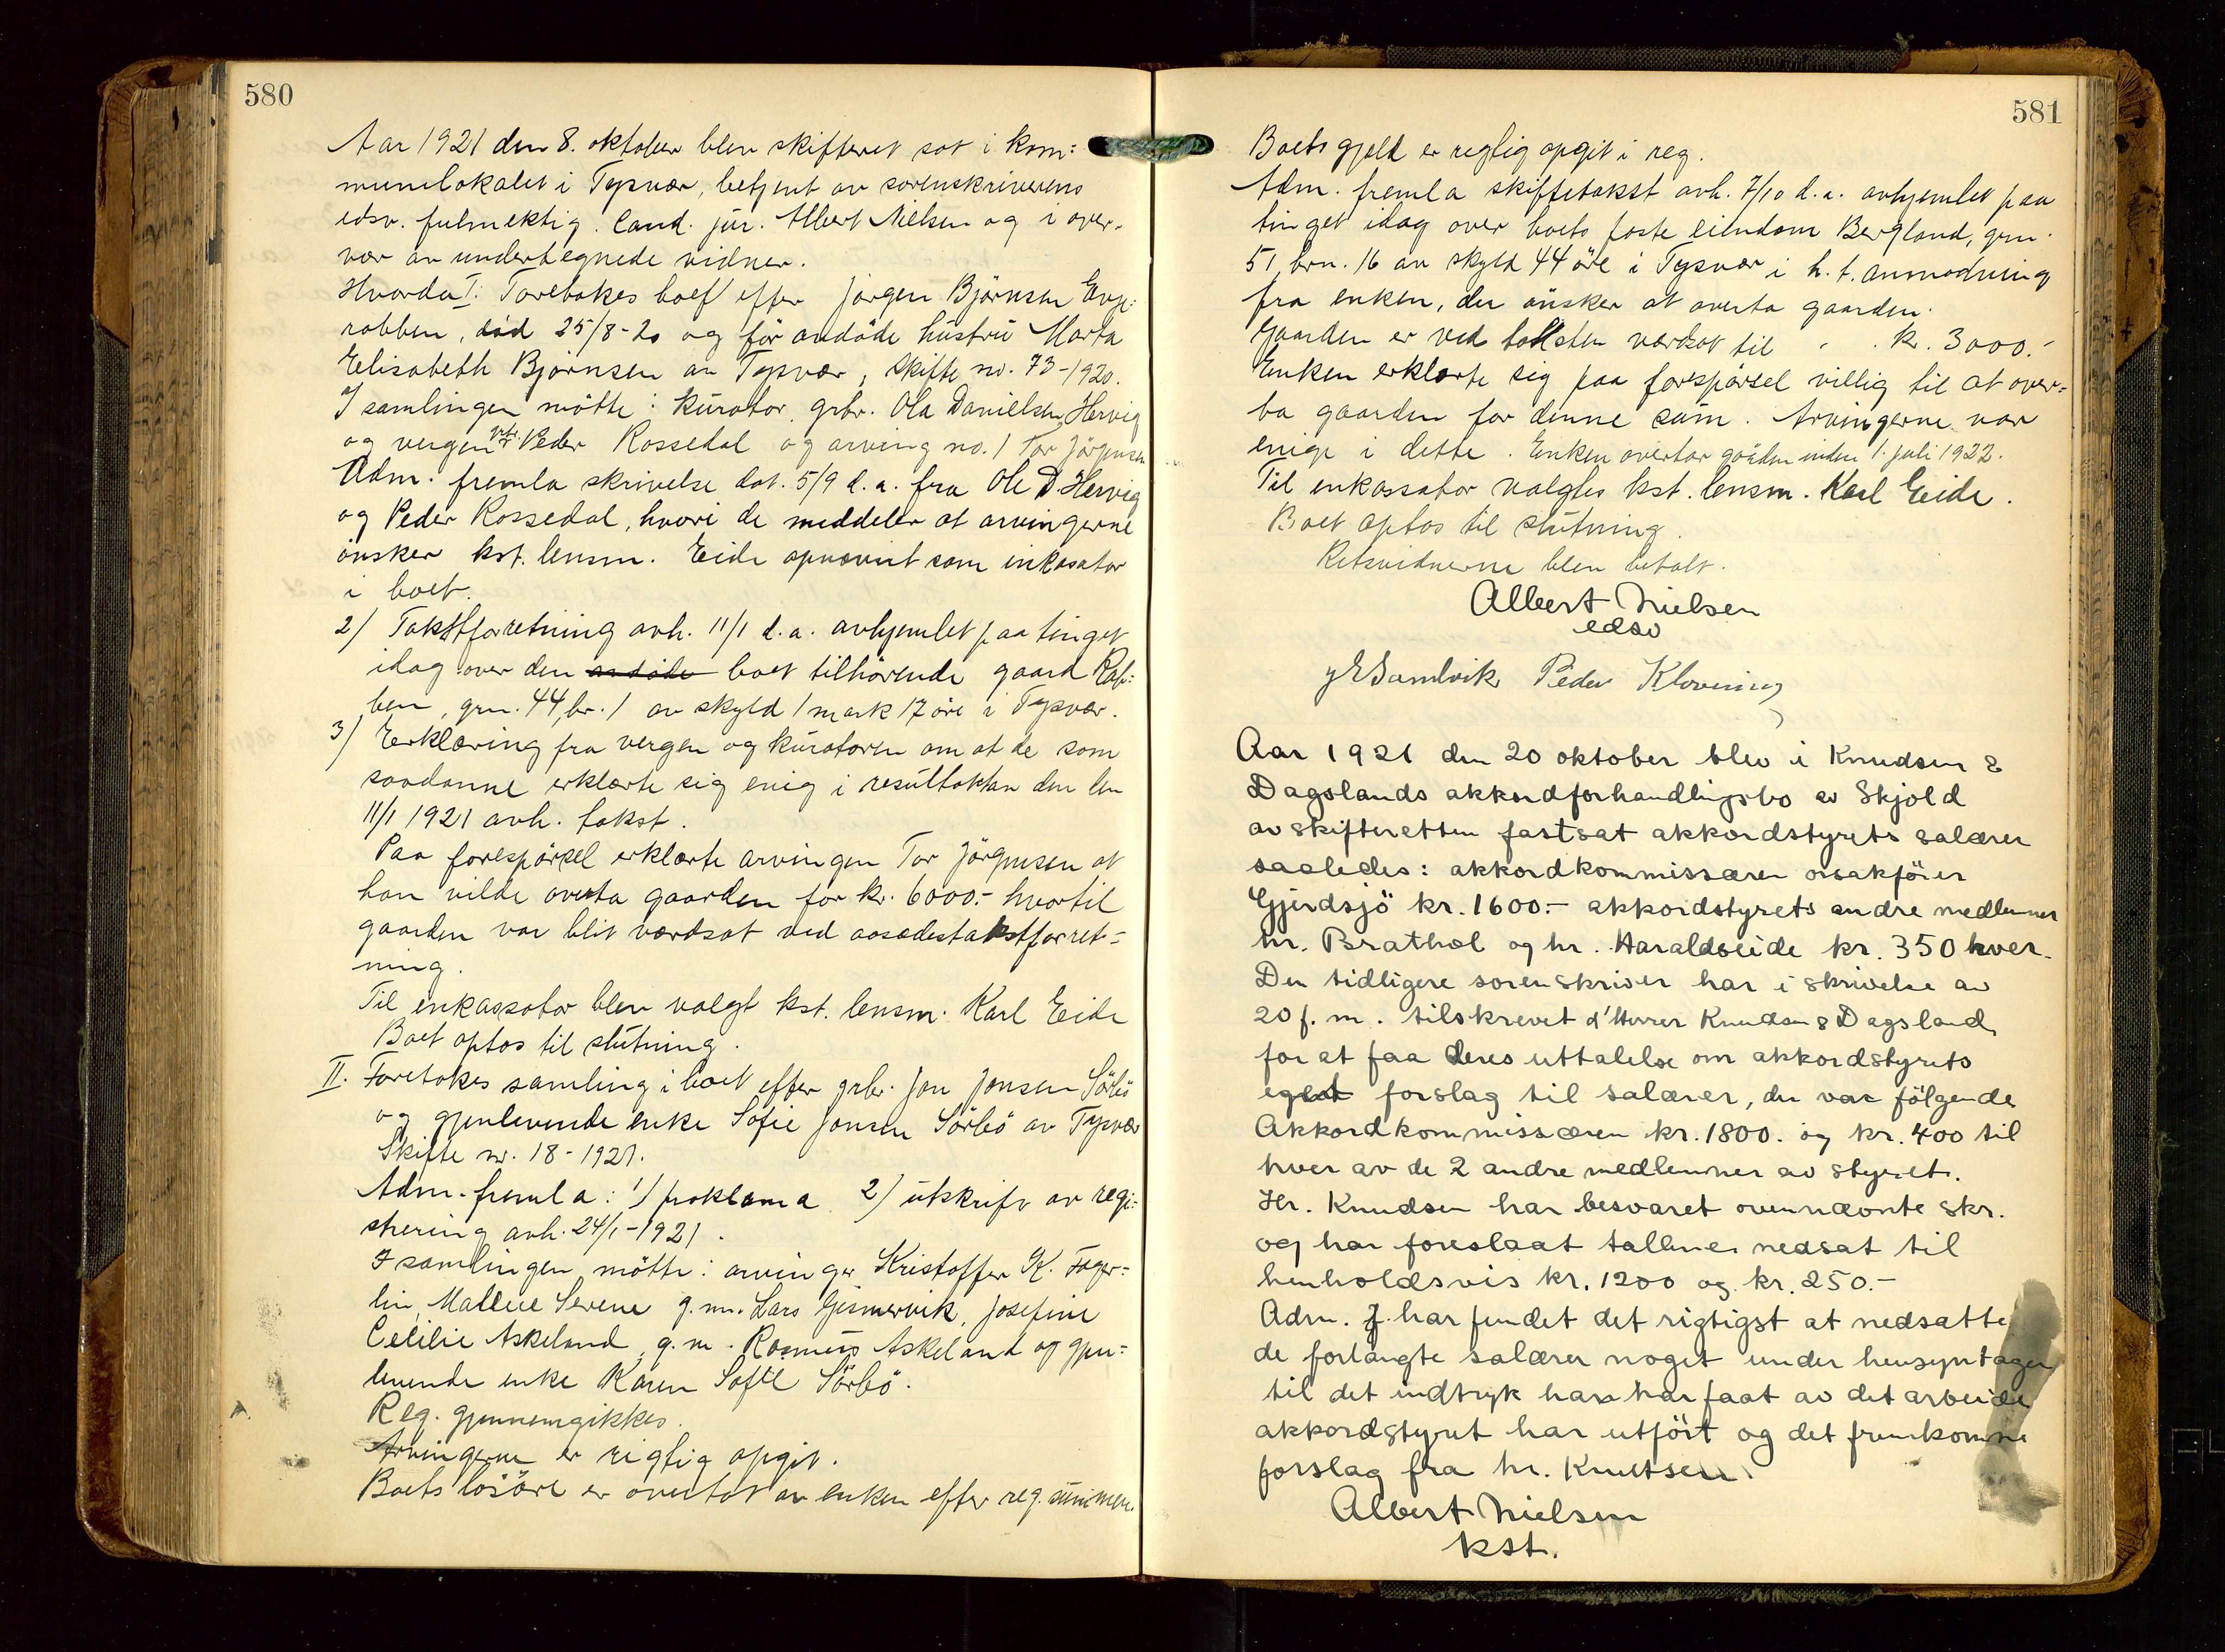 580
Aar 1921 den 8. oktober blev skifteret sat i kom=
munelokalet i Tysvær, betjent av sorenskriverens
edsv. fulmektig. Cand. jur. Albert Nielsen og i over-
vær av undertegnede vidner.
Hvorda I. Foretokes boet efter Jørgen Björnsen
robben, död 25/8-20 og för avdöde hustru Marta
Elisabeth Björnsen av Tysvær, Skifte no. 73-1920.
I samlingen mötte: kurator, grbr. Ola Danielsen Hervig
og vergen Peder Rossedal og arving no. 1 Tor Jörgensen
Adm. fremla skrivelse dat. 5/9 d.a. fra Ole D. Hervig
og Peder Rossedal, hvori de meddeler at arvingerne
önsker kst. lensm. Eide opnævnt som inkasator
i boet.
2) Takstforretning avh. 11/1 d.a. avhjemlet paa tinget
idag over den avdöde boet tilhörende gaard Rob=
ben, grn. 44, br. 1 av skyld 1 mark 17 öre i Tysvær.
3) Erklæring fra vergen og kuratoren om at de som
saadanne erklærte sig enig i resultaktan den
11/1 1921 avh. takst.
Paa forespörsel erklærte arvingen Tor Jörgensen at
han vilde overta gaarden for kr. 6000.- hvortil
gaarden var blit værdsat ved aasædestakstforret=
ning.
Til enkassator blev valgt kst. lensm. Karl Eide
Boet optas til slutning.
II. Foretokes samling i boet efter grbr. Jon Jonsen Sörbö
og gjenlevende enke Sofie Jonsen Sörbö av Tysvær
Skifte nr. 18-1921.
Adm. fremla: 1) proklama 2) utskrift av regi=
strering avh. 24/1-1921.
I samlingen mötte: arvinger Kristoffer K. Fager=
lin, Malene Serene g.m. Lars Gismervik, Josefine
Cecilie Askeland, g.m. Rasmus Askeland og gjen=
levende enke Karen Sofie Sörbö.
Reg. gjennemgikkes.
Arvingerne er rigtig opgit.
Boets lösöre er overtat av enken efter reg. summen.
581
Boets gjeld er rigtig opgit i reg.
Adm. fremla skiftetakst avh. 7/10 d.a. avhjemlet paa
tinget idag over boets faste eiendom Bergland, grn.
51, brn. 16 av skyld 44 öre i Tysvær i h.t. anmodning
fra enken, der önsker at overta gaarden.
Gaarden er ved taksten værdsat til - . kr. 3000.-
Enken erklærte seg paa forespörsel villig til at over=
ta gaarden for denne sum. Arvingerne var
enige i dette. Enken overtar gaarden inden 1. juli 1922.
Til enkassator valgtes kst. lensm. Karl Eide.
Boet optas til slutning.
Retsvidnerne blev betalt.
Albert Nielsen
edsv
Sandvik Peder Klovning
Aar 1921 den 20 oktober blev i Knudsen &
Dagslands akkordforhandlingsbo av Skjold
av skifteretten fastsat akkordstyrets salærer
saaledes: akkordkommissæren osakförer
Gjerdsjö kr. 1600.- akkordstyrets andre medlemmer
hr. Brathol og hr. Haraldseide kr. 350 hver.
Den tidligere sorenskriver har i skrivelse av
20 f.m. tilskrevet d'Herrer Knudsen & Dagsland
for at faa deres uttalelse om akkordstyrets
eget forslag til salærer, der var fölgende
Akkordkommissæren kr. 1800. og kr. 400 til
hver av de 2 andre medlemmer av styret.
Hr. Knudsen har besvaret ovennævnte skr.
og har foreslaat tallene nedsat til
henholdsvis kr. 1200 og kr. 250.-
Adm. har fundet det rigtigst at nedsatte
de forlangte salærer noget under hensyntagen
til det indtryk han har faat av det arbeide
akkordstyret har utfört og det fremkomne
forslag fra hr. Knutsen.
Albert Nielsen
kst.